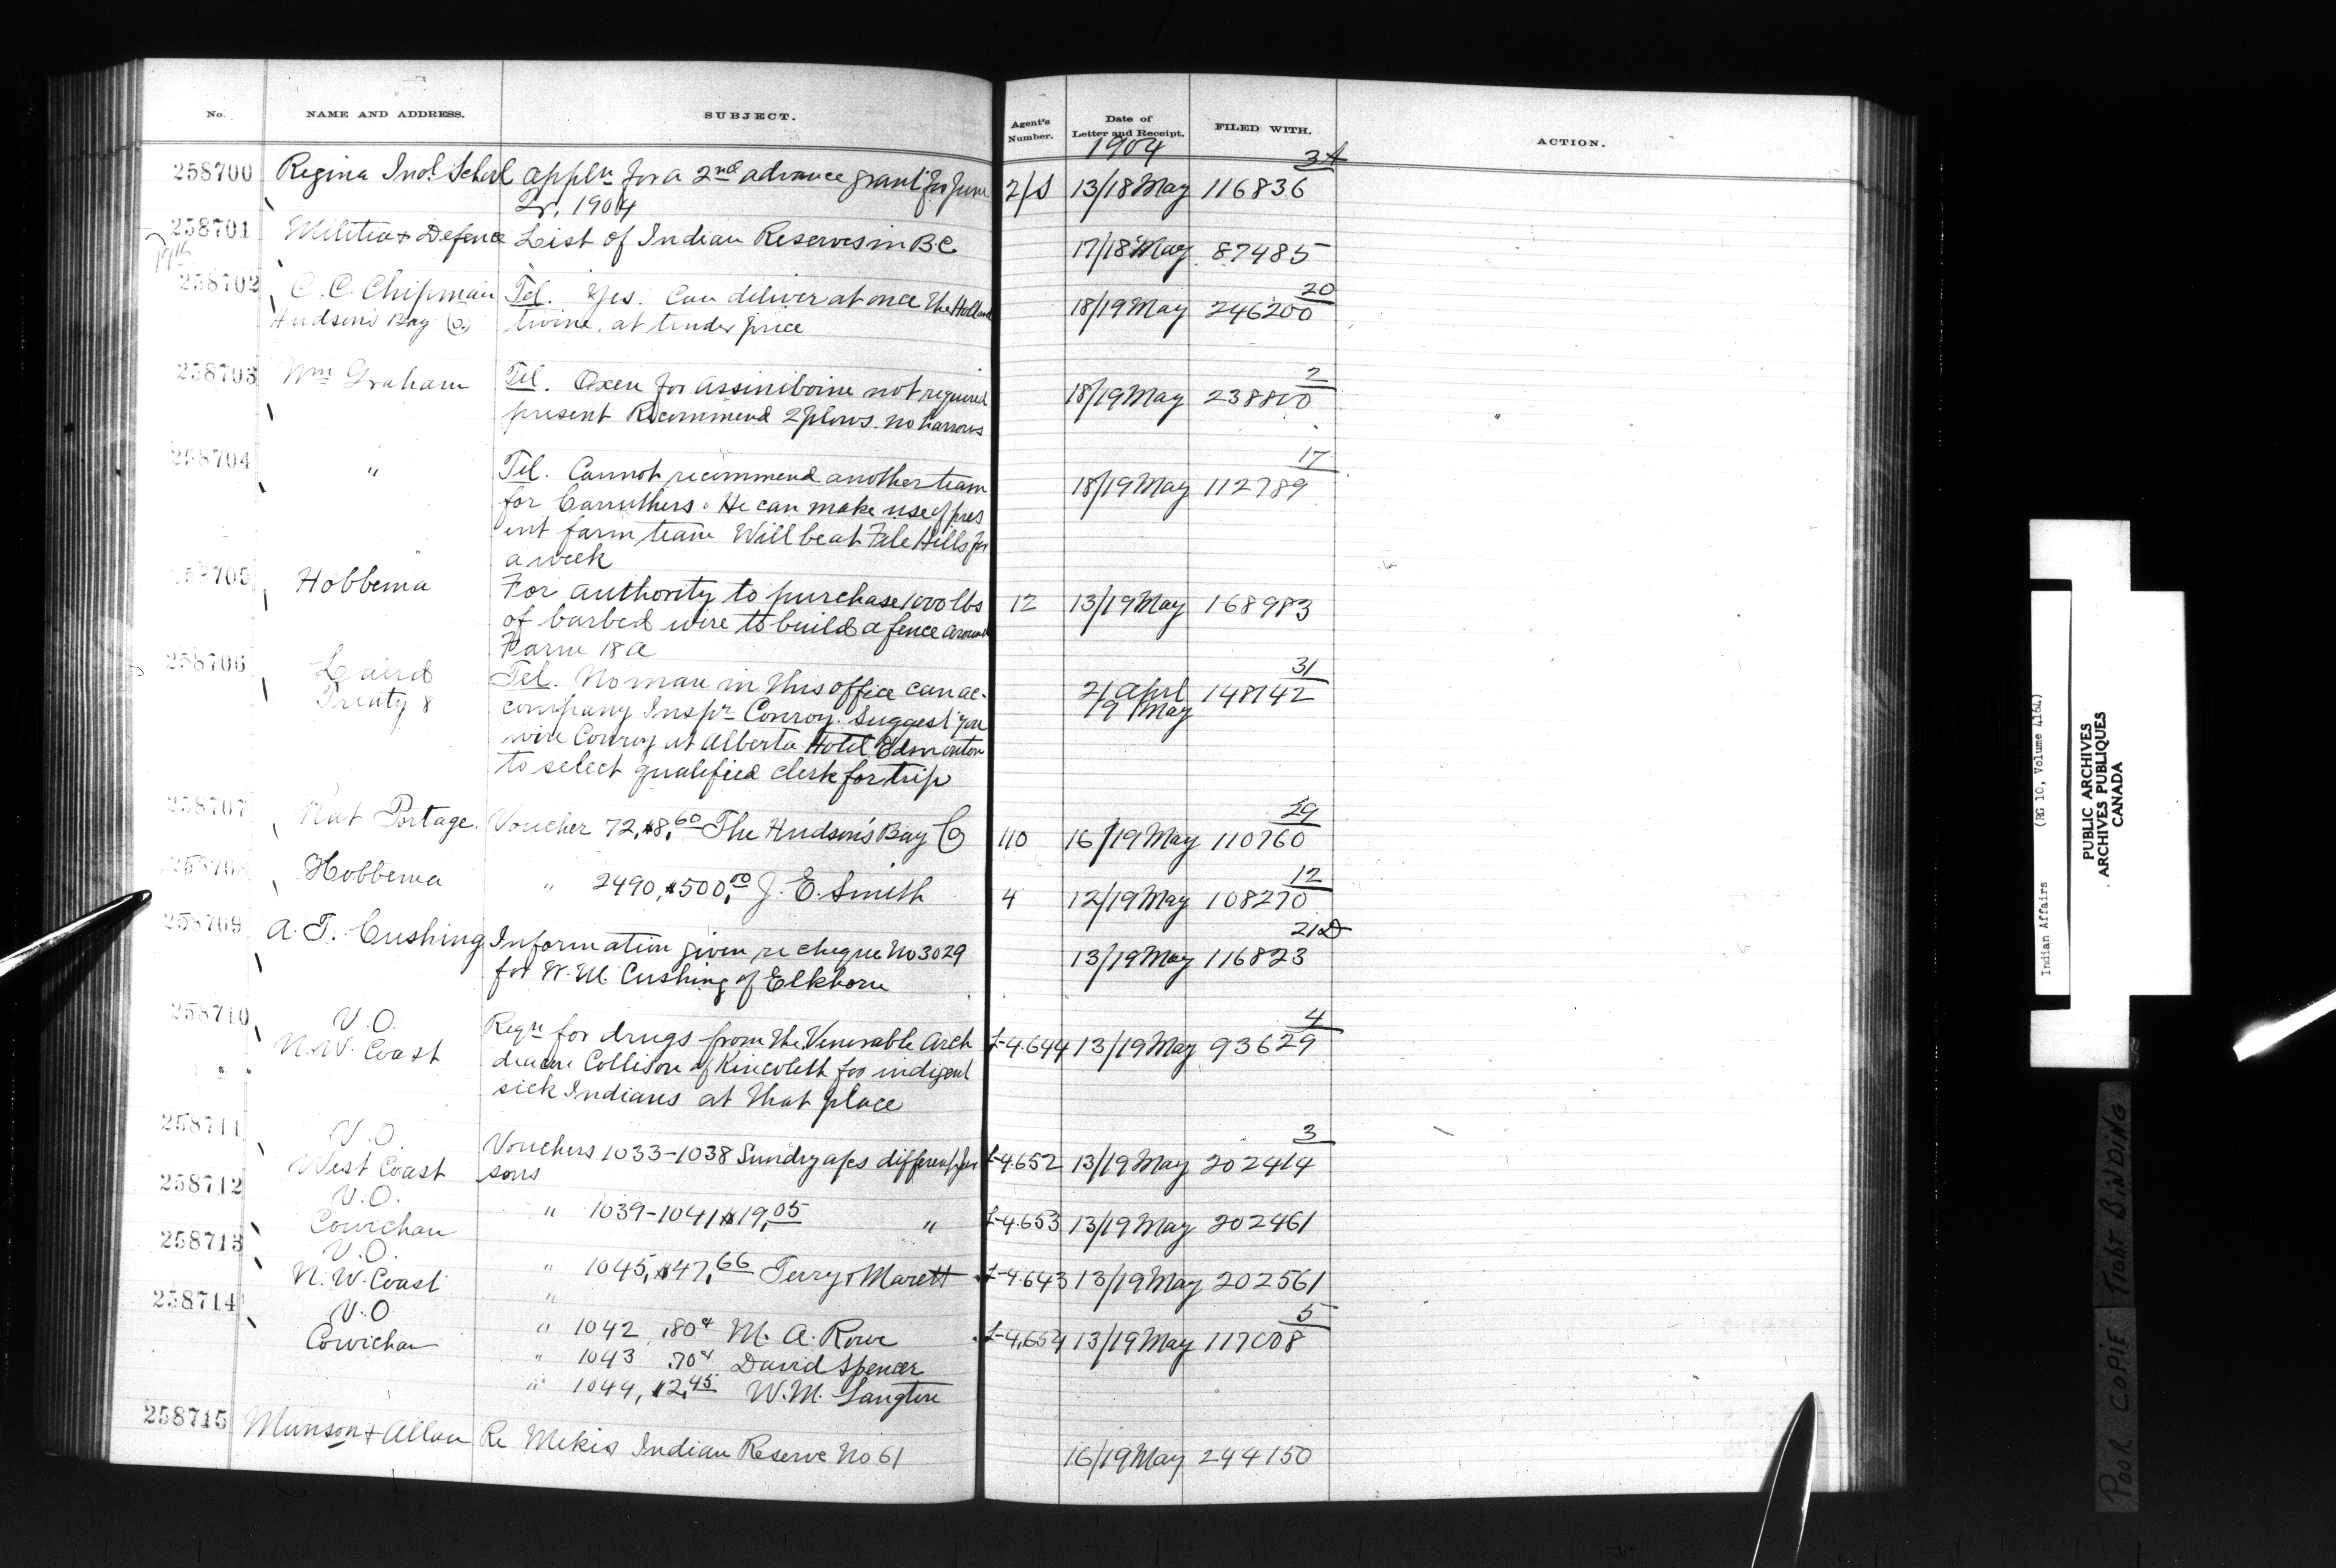 No. NAME AND ADDRESS. SUBJECT. Agent's Number. Date of Letter and Receipt. FILED WITH. ACTION.
1904 3A
258700 Regina Indl. School Appln for a 2nd advance grant for June 2/S 13/18 May 116836
Qr. 1904
258701 Militia & Defence List of Indian Reserves in B.C. 17/18 May 87485
17th
258702 C. C. Chipman Tel. Yes. Can deliver at once the Holland 18/19 May 246200 20
Hudson's Bay Co. twine. at tender price
258703 Wm Graham Tel. Oxen for Assiniboine not required 18/19 May 238800 2
present Recommend 2 plows. no harrows
258704 " Tel. Cannot recommend another team 18/19 May 112789 17
for Carruthers. He can make use of pres
ent farm team Will be at File Hills for
a week
258705 Hobbema For authority to purchase 1000 lbs 12 13/19 May 168983
of barbed wire to build a fence around
Farm 18 A
258706 Laird Tel. No man in this office can ac- 21 April 148142 31
Treaty 8 company Inspr Conroy. Suggest you 19 May
wire Conroy at Alberta Hotel Edmonton
to select qualified clerk for trip
258707 Rat Portage. Voucher 72, $8.60 The Hudson's Bay Co 110 16/19 May 110760 29
258708 Hobbema " 2490, $500.00 J. E. Smith 4 12/19 May 108270 12
258709 A. T. Cushing Information given re cheque No 3029 13/19 May 116823 21D
for W. M. Cushing of Elkhorn
258710 V.O. Reqn for drugs from the Venerable Arch L-4.644 13/19 May 93629 4
N.W. Coast deacon Collison of Kincolith for indigent
sick Indians at that place
258711 V.O. Vouchers 1033-1038 Sundry a/cs different per L-4.652 13/19 May 202414 3
West Coast sons
258712 V.O. " 1039-1041 $19.05 " L-4.653 13/19 May 202461
Cowichan
258713 V.O. " 1045, $47.66 Terry & Marett L-4.643 13/19 May 202561
N.W. Coast "
258714 V.O. " 1042 .80¢ M. A. Rowe L-4.654 13/19 May 117008 5
Cowichan " 1043 .70¢ David Spencer
" 1044, $2.45 W.M. Langton
258715 Munson & Allan Re Mekis Indian Reserve No 61 16/19 May 244150
Indian Affairs (RG 10, Volume 4164)
PUBLIC ARCHIVES
ARCHIVES PUBLIQUES
CANADA
POOR COPIE TIGHT BINDING